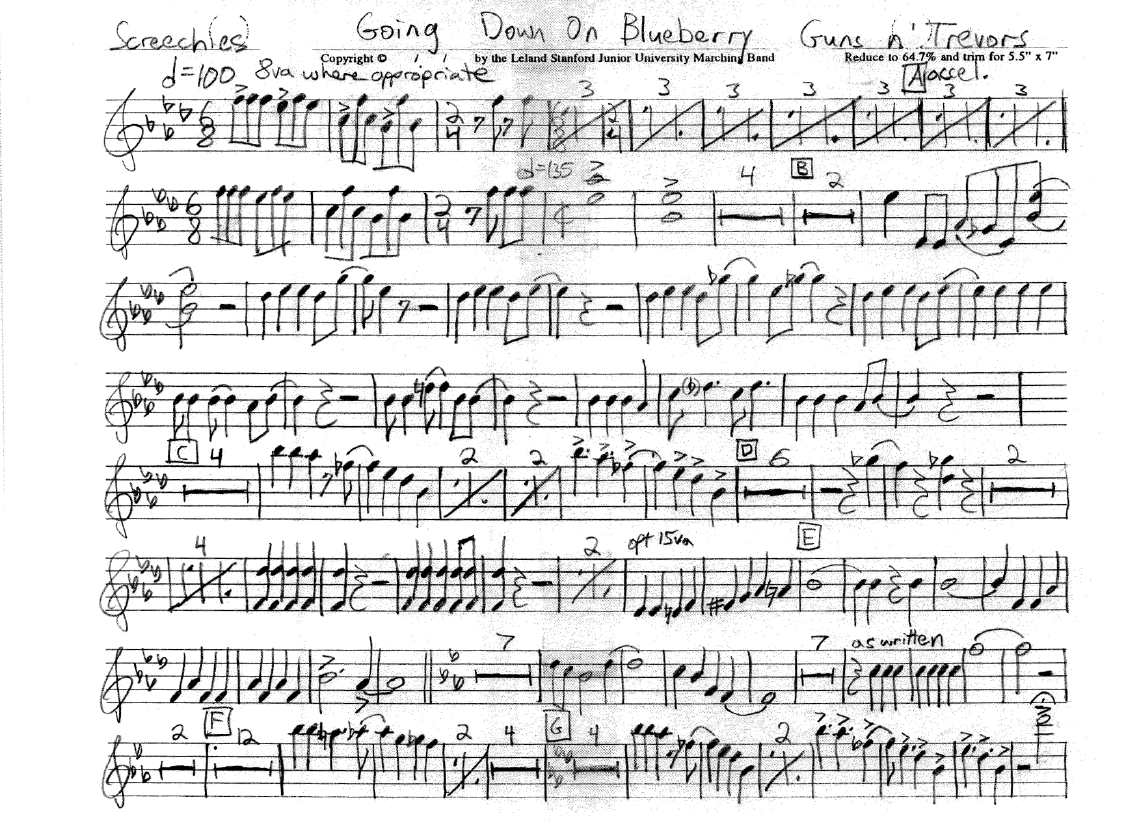 Screechies Going Down On Blueberry Guns n' Trevors
Copyright © by the Leland Stanford Junior University Marching Band Reduce to 64.7% and trim for 5.5" x 7"
d=100 8va where appropriate A accel.
3 3 3 3 3 3 3
6 8 2 4 6 8 2 4
d=135 4 B 2
6 8 2 4
C 4 2 2 D 6 2
4 2 opt 15va E
7 7 as written
2 F 12 2 4 G 4 2